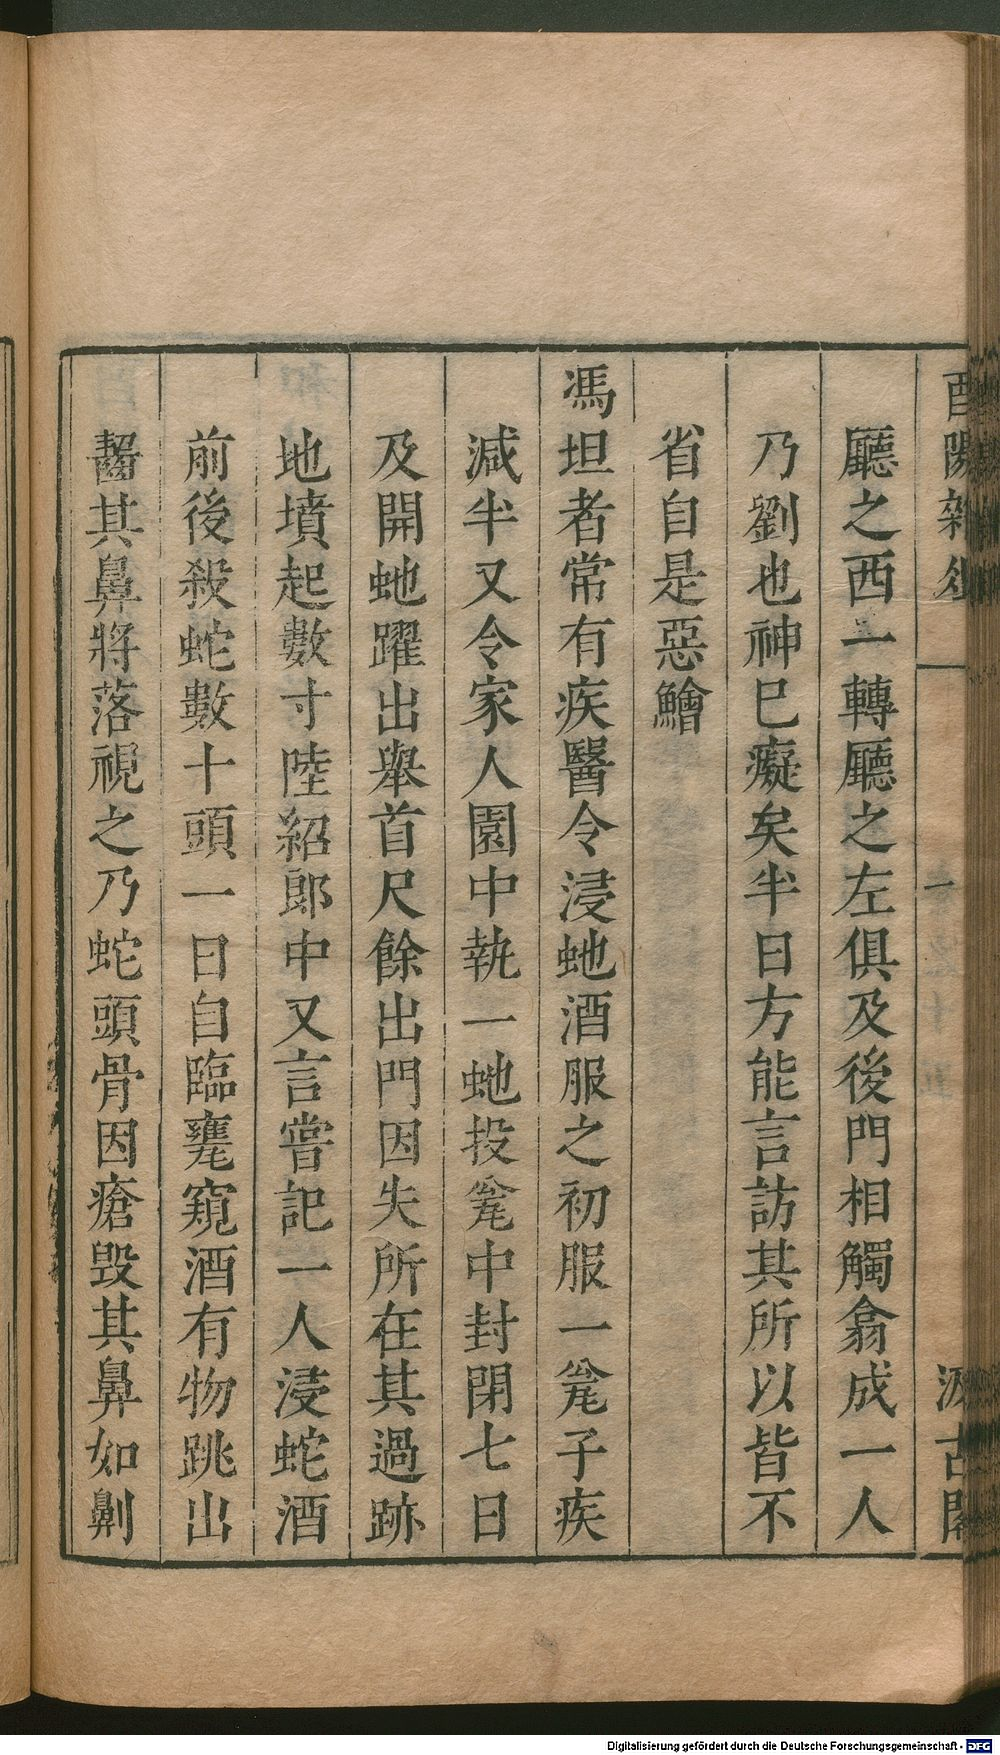 酉陽雜俎
一
汲古閣
廳之西一轉廳之左俱及後門相觸翕成一人
乃劉也神巳癡矣半日方能言訪其所以皆不
省自是惡鱠
馮坦者常有疾醫令浸虵酒服之初服一甕子疾
減半又令家人園中執一虵投甕中封閉七日
及開虵躍出舉首尺餘出門因失所在其過跡
地墳起數寸陸紹郎中又言嘗記一人浸蛇酒
前後殺蛇數十頭一日自臨甕窺酒有物跳出
齧其鼻將落視之乃蛇頭骨因瘡毁其鼻如劓
Digitalisierung gefördert durch die Deutsche Forschungsgemeinschaft - DFG